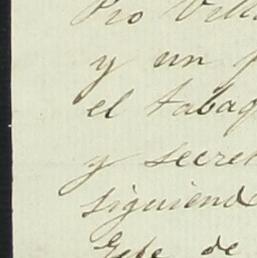 Pio Vill
y un p
el tabaq
y secret
siguiend
Gefe de